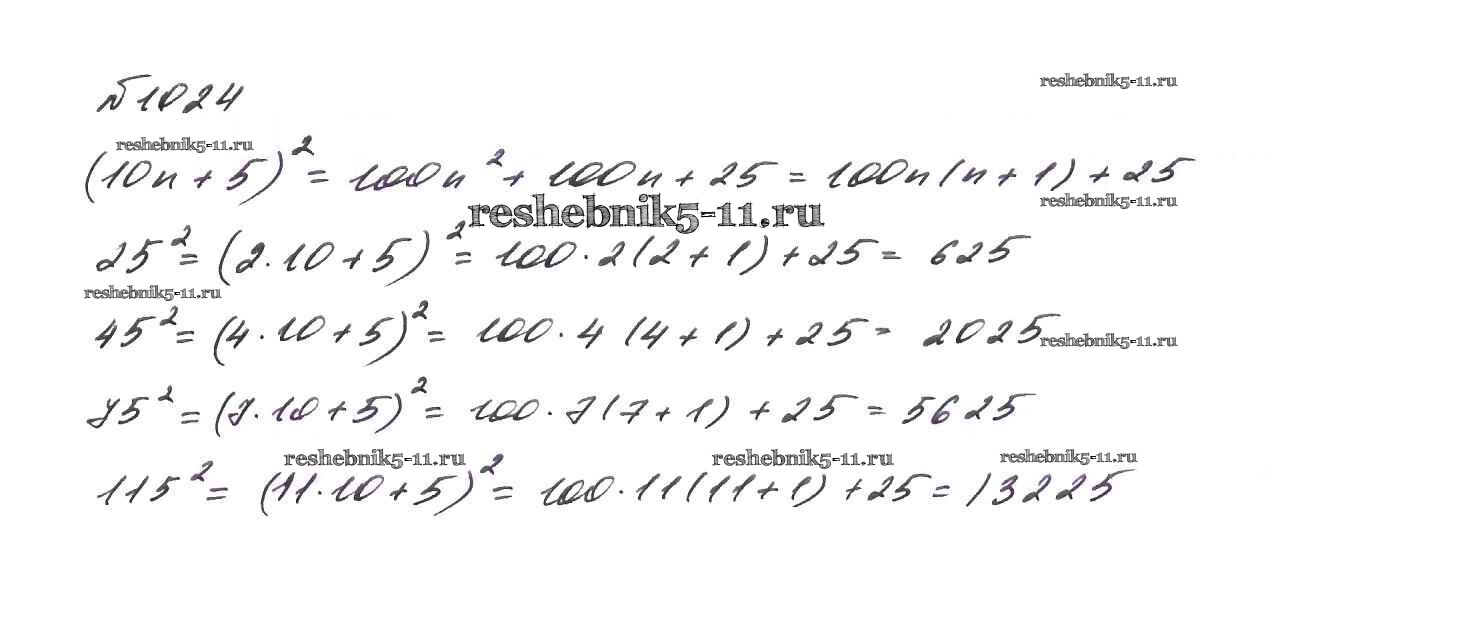 №1024
reshebnik5-11.ru
reshebnik5-11.ru
(10n + 5)² = 100n² + 100n + 25 = 100n(n + 1) + 25
reshebnik5-11.ru
reshebnik5-11.ru
25² = (2·10 + 5)² = 100·2(2 + 1) + 25 = 625
reshebnik5-11.ru
45² = (4·10 + 5)² = 100·4(4 + 1) + 25 = 2025
reshebnik5-11.ru
75² = (7·10 + 5)² = 100·7(7 + 1) + 25 = 5625
reshebnik5-11.ru
reshebnik5-11.ru
reshebnik5-11.ru
115² = (11·10 + 5)² = 100·11(11 + 1) + 25 = 13225